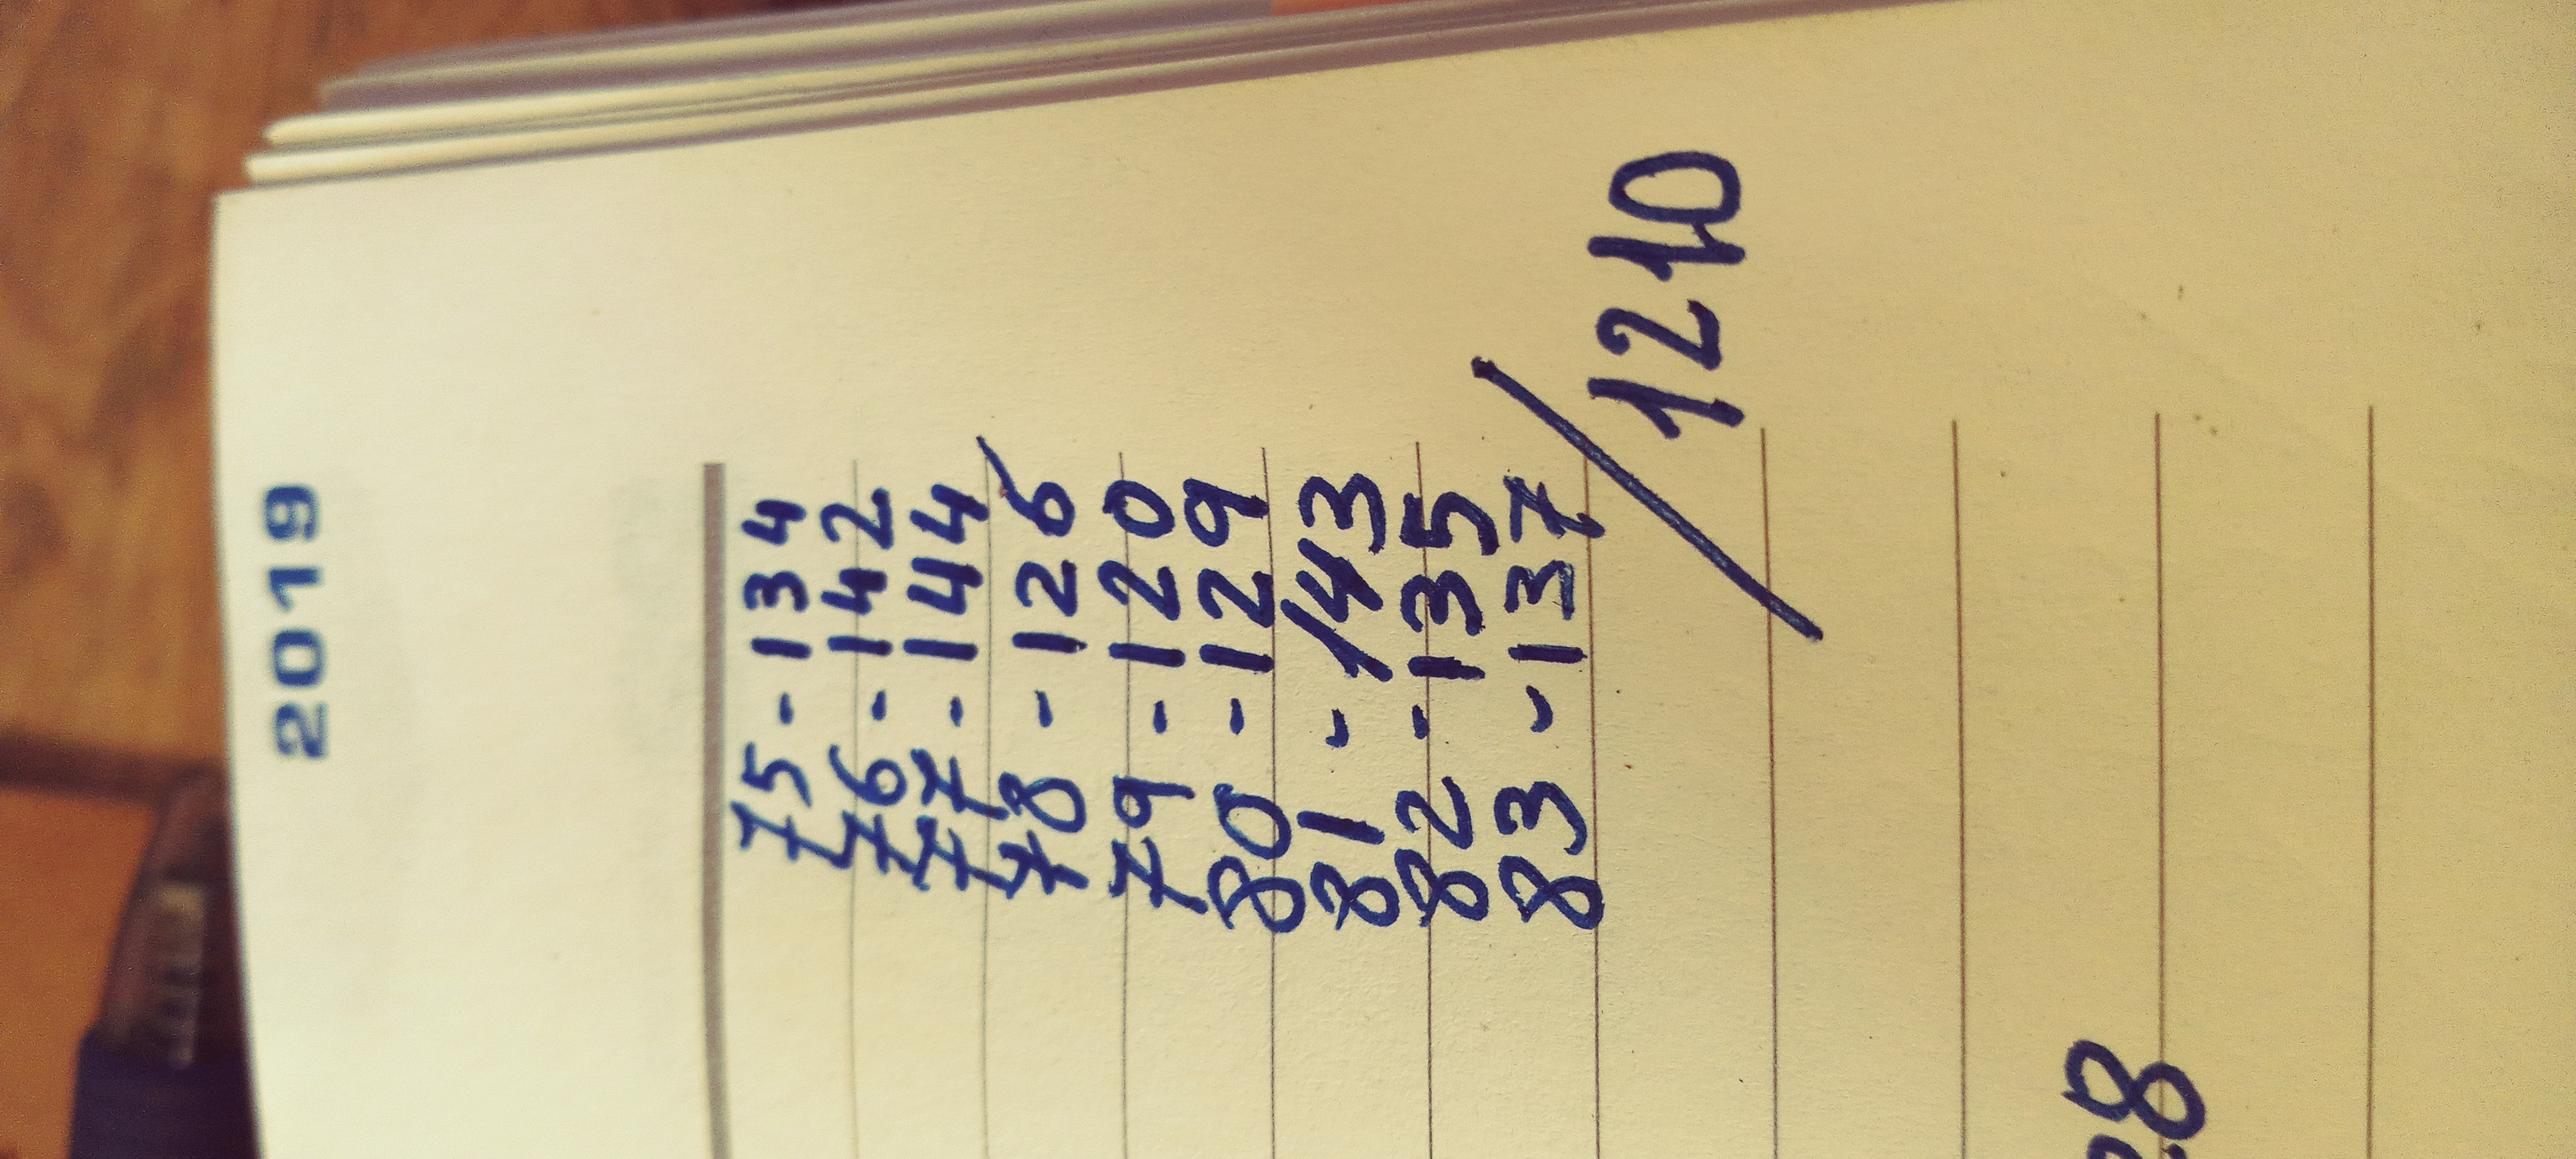 2019
75 - 134
76 - 142
77 - 144
78 - 126
79 - 120
80 - 129
81 - 143
82 - 135
83 - 137
1210